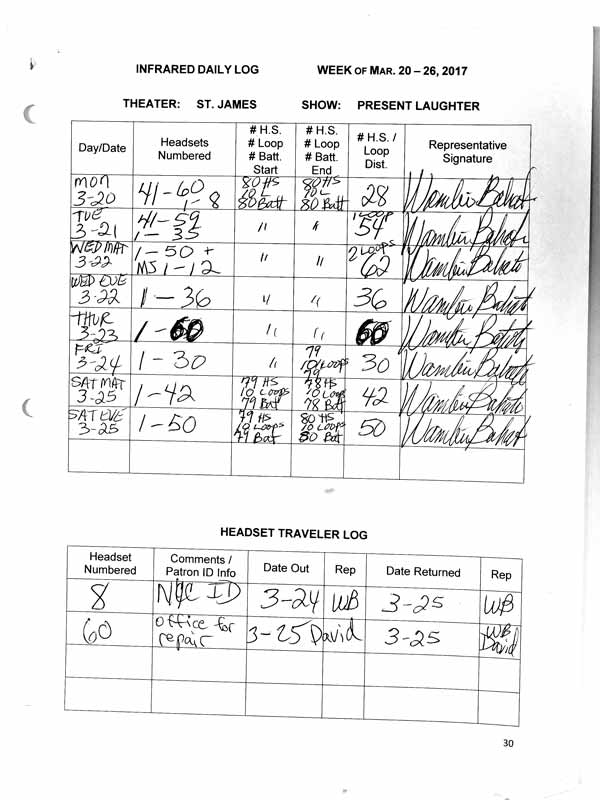 INFRARED DAILY LOG WEEK OF MAR. 20 – 26, 2017
THEATER: ST. JAMES SHOW: PRESENT LAUGHTER
Day/Date Headsets Numbered # H.S. # Loop # Batt. Start # H.S. # Loop # Batt. End # H.S. / Loop Dist. Representative Signature
MON 3-20 41-60 1-8 80 HS 10 L 80 Batt 80 HS 10 L 80 Batt 28
TUE 3-21 41-59 1-35 " " 1 LOOP 54
WED MAT 3-22 1-50 + MS 1-12 " " 2 LOOPS 62
WED EVE 3-22 1-36 " " 36
THUR 3-23 1-60 " " 60
FRI 3-24 1-30 " 79 10 Loops 79 30
SAT MAT 3-25 1-42 79 HS 10 Loops 79 Bat 78 HS 10 Loop 78 Bat 42
SAT EVE 3-25 1-50 79 HS 10 Loops 79 Bat 80 HS 10 Loops 80 Bat 50
HEADSET TRAVELER LOG
Headset Numbered Comments / Patron ID Info Date Out Rep Date Returned Rep
8 NYC ID 3-24 WB 3-25 WB
60 office for repair 3-25 David 3-25 WB David
30